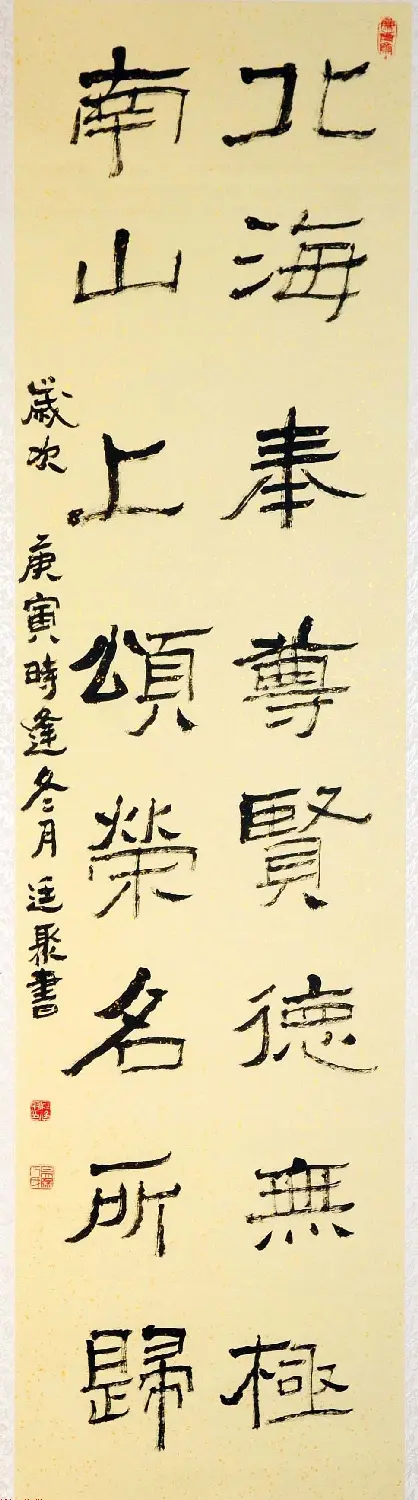 北海奉尊賢德無極
南山上頌榮名所歸
歲次 庚寅時逢冬月廷聚書